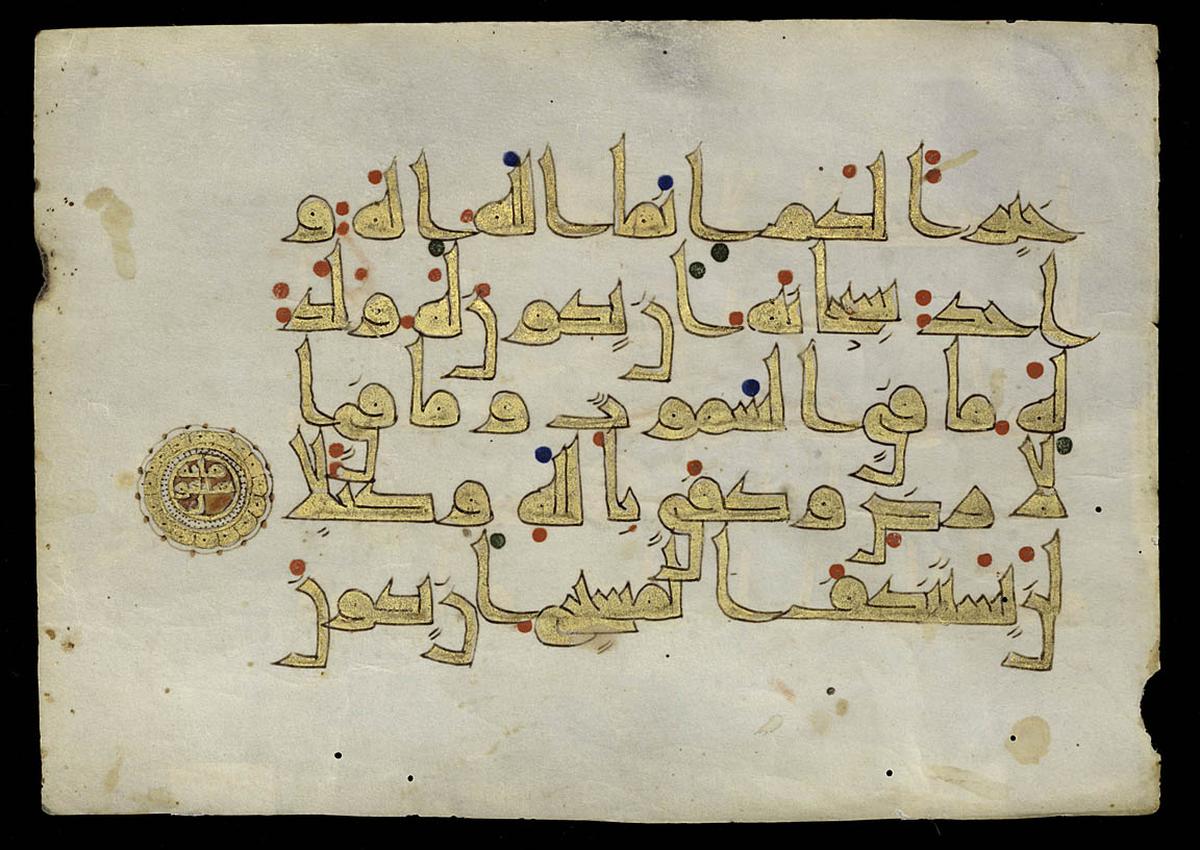 خيرا لكم انما الله اله و
احد سبحانه ان يكون له ولد
له ما في السموت وما في ا
لارض وكفى بالله وكيلا
لن يستنكف المسيح ان يكون